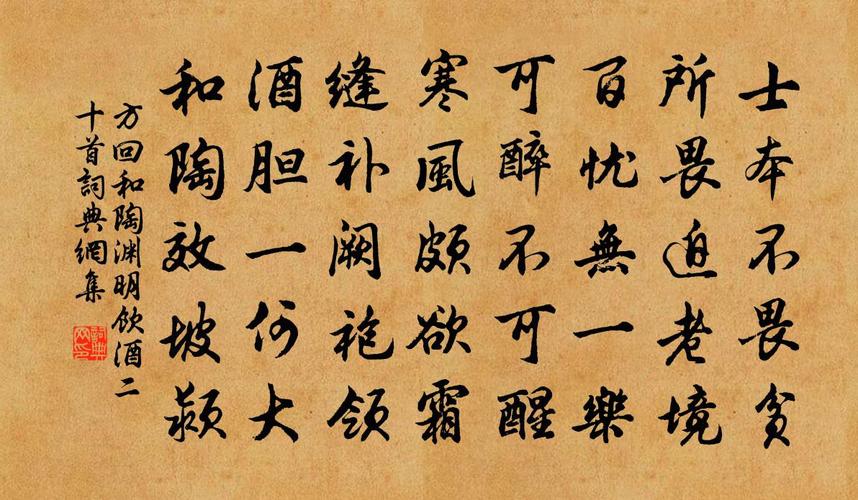 士本不畏贫
所畏迫老境
百忧無一樂
可醉不可醒
寒風颇欲霜
缝补阙袍领
酒胆一何大
和陶效坡颍
方回和陶渊明饮酒二
十首詞典網集